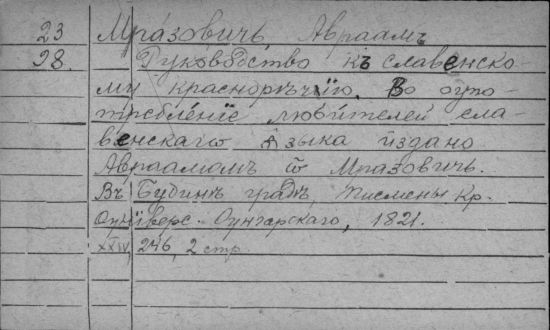 23 Мразовичъ Авраамъ
98. Руководство къ славенско-
му краснорѣчїю. Во оупо-
требленіе любителей сла-
венскагѡ языка издано
Авраамомъ ѿ Мразовичъ.
Въ Будинѣ градѣ, Писмены Кр.
Оунїверс. Оунгарскаго, 1821.
XXIV, 246, 2 стр.